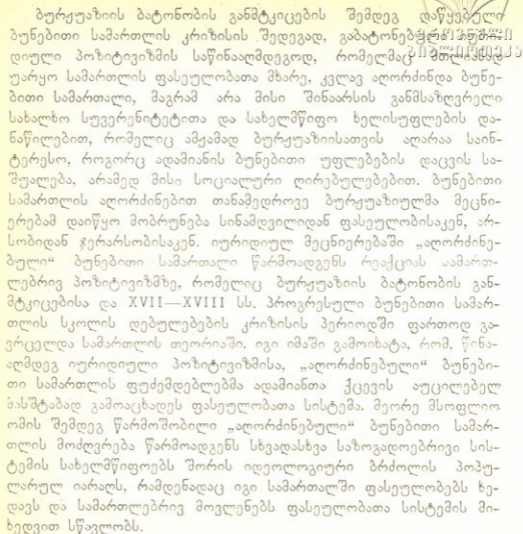 ბურჟუაზიის ბატონობის განმტკიცების შემდეგ დაწყებული
ბუნებითი სამართლის კრიზისის შედეგად, გაბატონებული
დიული პოზიტივიზმის საწინააღმდეგოდ, რომელმაც მთლიანად
უარყო სამართლის ფასეულობათა მხარე, კვლავ აღორძინდა ბუნე-
ბითი სამართალი, მაგრამ არა მისი შინაარსის განმსაზღვრელი
სახალხო სუვერენიტეტითა და სახელმწიფო ხელისუფლების და-
ნაწილებით, რომელიც ამჟამად ბურჟუაზიისათვის აღარაა საინ-
ტერესო, როგორც ადამიანის ბუნებითი უფლებების დაცვის სა-
შუალება, არამედ მისი სოციალური ღირებულებებით. ბუნებითი
სამართლის აღორძინებით თანამედროვე ბურჟუაზიულმა მეცნი-
ერებამ დაიწყო მობრუნება სინამდვილიდან ფასეულობისაკენ, არ-
სობიდან ჯერარსობისაკენ. იურიდიულ მეცნიერებაში „აღორძინე-
ბული“ ბუნებითი სამართალი წარმოადგენს რეაქციას სამართ-
ლებრივ პოზიტივიზმზე, რომელიც ბურჟუაზიის ბატონობის გან-
მტკიცებისა და XVII—XVIII სს. პროგრესული ბუნებითი სამარ-
თლის სკოლის დებულებების კრიზისის პერიოდში ფართოდ გა-
ვრცელდა სამართლის თეორიაში. იგი იმაში გამოიხატა, რომ, წინა-
აღმდეგ იურიდიული პოზიტივიზმისა, „აღორძინებული“ ბუნები-
თი სამართლის ფუძემდებლებმა ადამიანთა ქცევის აუცილებელ
მასშტაბად გამოაცხადეს ფასეულობათა სისტემა. მეორე მსოფლიო
ომის შემდეგ წარმოშობილი „აღორძინებული“ ბუნებითი სამარ-
თლის მოძღვრება წარმოადგენს სხვადასხვა საზოგადოებრივი სის-
ტემის სახელმწიფოებს შორის იდეოლოგიური ბრძოლის პოპუ-
ლარულ იარაღს, რამდენადაც იგი სამართალში ფასეულობებს ხე-
დავს და სამართლებრივ მოვლენებს ფასეულობათა სისტემის მი-
ხედვით სწავლობს.